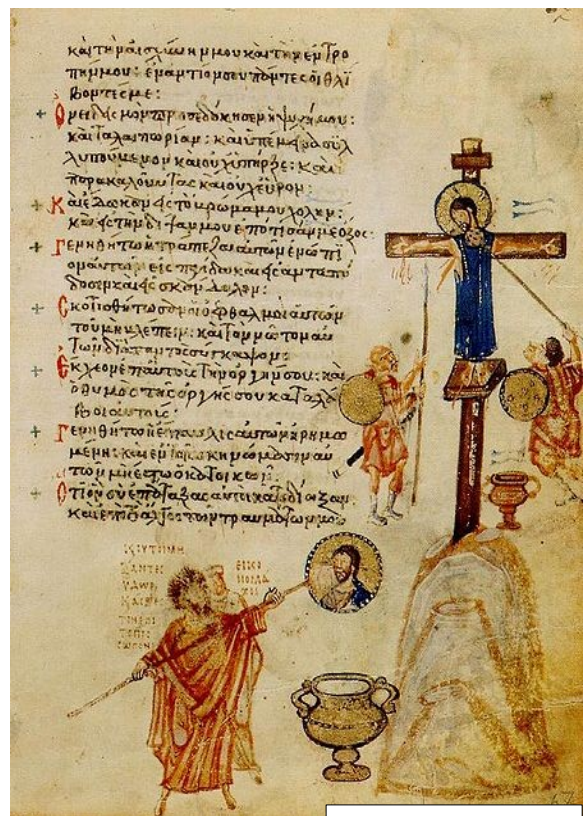 καὶ τὴν αἰσχύνην μου καὶ τὴν ἐντρο
πήν μου: ἐναντίον σου πάντες οἱ θλί
βοντές με:
Ὀνειδισμὸν προσεδόκησεν ἡ ψυχή μου:
καὶ ταλαιπωρίαν: καὶ ὑπέμεινα συλ
λυπούμενον καὶ οὐχ ὑπῆρξε: καὶ
παρακαλοῦντας καὶ οὐχ εὗρον:
Καὶ ἔδωκαν εἰς τὸ βρῶμά μου χολήν:
καὶ εἰς τὴν δίψαν μου ἐπότισάν με ὄξος:
Γενηθήτω ἡ τράπεζα αὐτῶν ἐνώπι
ον αὐτῶν εἰς παγίδα καὶ εἰς ἀνταπό
δοσιν καὶ εἰς σκάνδαλον:
Σκοτισθήτωσαν οἱ ὀφθαλμοὶ αὐτῶν
τοῦ μὴ βλέπειν: καὶ τὸν νῶτον αὐ
τῶν διὰ παντὸς σύγκαμψον:
Ἔκχεον ἐπ' αὐτοὺς τὴν ὀργήν σου: καὶ
ὁ θυμὸς τῆς ὀργῆς σου καταλά
βοι αὐτούς:
Γενηθήτω ἡ ἔπαυλις αὐτῶν ἠρημω
μένη: καὶ ἐν τοῖς σκηνώμασιν αὐ
τῶν μὴ ἔστω ὁ κατοικῶν:
Ὅτι ὃν σὺ ἐπάταξας αὐτοὶ κατεδίωξαν
καὶ ἐπὶ τὸ ἄλγος τῶν τραυμάτων μου